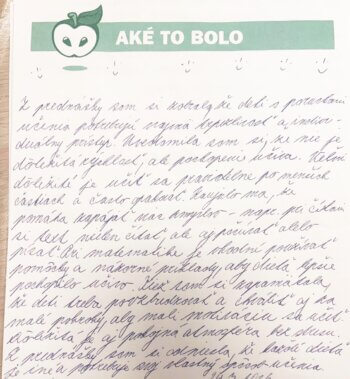 AKÉ TO BOLO
Z prednášky som si odniesla, že deti s poruchami
učenia potrebujú najmä trpezlivosť a indivi-
duálny prístup. Uvedomila som si, že nie je
dôležitá rýchlosť, ale pochopenie učiva. Veľmi
dôležité je učiť sa pravidelne po menších
častiach a často opakovať. Zaujalo ma, že
pomáha zapájať viac zmyslov - napr. pri čítaní
si text nielen čítať, ale aj počúvať alebo
písať. Pri matematike je vhodné používať
pomôcky a názorné príklady, aby dieťa lepšie
pochopilo učivo. Tiež som si zapamätala,
že deti treba povzbudzovať a chváliť aj za
malé pokroky, aby mali motiváciu sa učiť.
Dôležitá je aj pokojná atmosféra bez stresu.
Z prednášky som si odniesla, že každé dieťa
je iné a potrebuje svoj vlastný spôsob učenia.